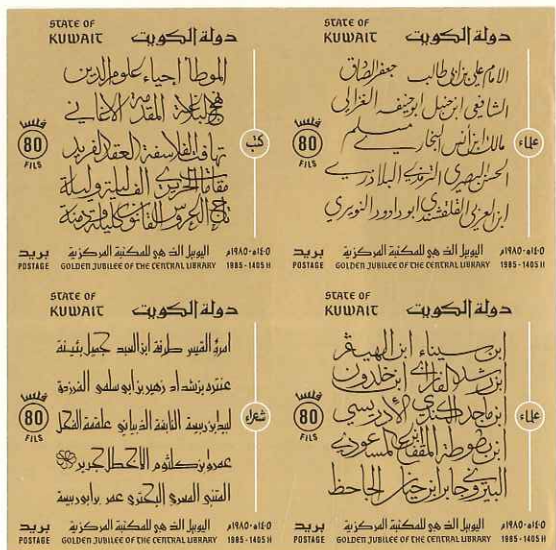 STATE OF KUWAIT دولة الكويت
الموطأ إحياء علوم الدين
نهج البلاغة المقدمة الأغاني
تهافت الفلاسفة العقد الفريد
مقامات الحريري ألف ليلة وليلة
تاج العروس القانون كليلة ودمنة
فلسا 80 FILS
كتب
بريد POSTAGE
اليوبيل الذهبي للمكتبة المركزية ١٤٠٥ه-١٩٨٥م
GOLDEN JUBILEE OF THE CENTRAL LIBRARY 1985-1405 H
STATE OF KUWAIT دولة الكويت
الامام علي بن ابي طالب جعفر الصادق
الشافعي ابن حنبل ابو حنيفه الغزالي
مالك ابن انس البخاري مسلم
الحسن البصري الترمذي البلاذري
ابن العربي القلقشندي ابو داوود النويري
فلسا 80 FILS
علماء
بريد POSTAGE
اليوبيل الذهبي للمكتبة المركزية ١٤٠٥ه-١٩٨٥م
GOLDEN JUBILEE OF THE CENTRAL LIBRARY 1985-1405 H
STATE OF KUWAIT دولة الكويت
امرؤ القيس طرفة ابن العبد جميل بثينة
عنتره بن شداد زهير بن أبي سلمى الفرزدق
لبيد بن ربيعة النابغة الذبياني علقمة الفحل
عمرو بن كلثوم الأخطل جرير
المتنبي المعري البحتري عمر بن أبي ربيعة
فلسا 80 FILS
شعراء
بريد POSTAGE
اليوبيل الذهبي للمكتبة المركزية ١٤٠٥ه-١٩٨٥م
GOLDEN JUBILEE OF THE CENTRAL LIBRARY 1985-1405 H
STATE OF KUWAIT دولة الكويت
ابن سيناء ابن الهيثم
ابن رشد الفارابي ابن خلدون
ابن ماجد الكندي الأدريسي
ابن بطوطة ابن المقفع المسعودي
البيروني جابر ابن حيان الجاحظ
فلسا 80 FILS
علماء
بريد POSTAGE
اليوبيل الذهبي للمكتبة المركزية ١٤٠٥ه-١٩٨٥م
GOLDEN JUBILEE OF THE CENTRAL LIBRARY 1985-1405 H